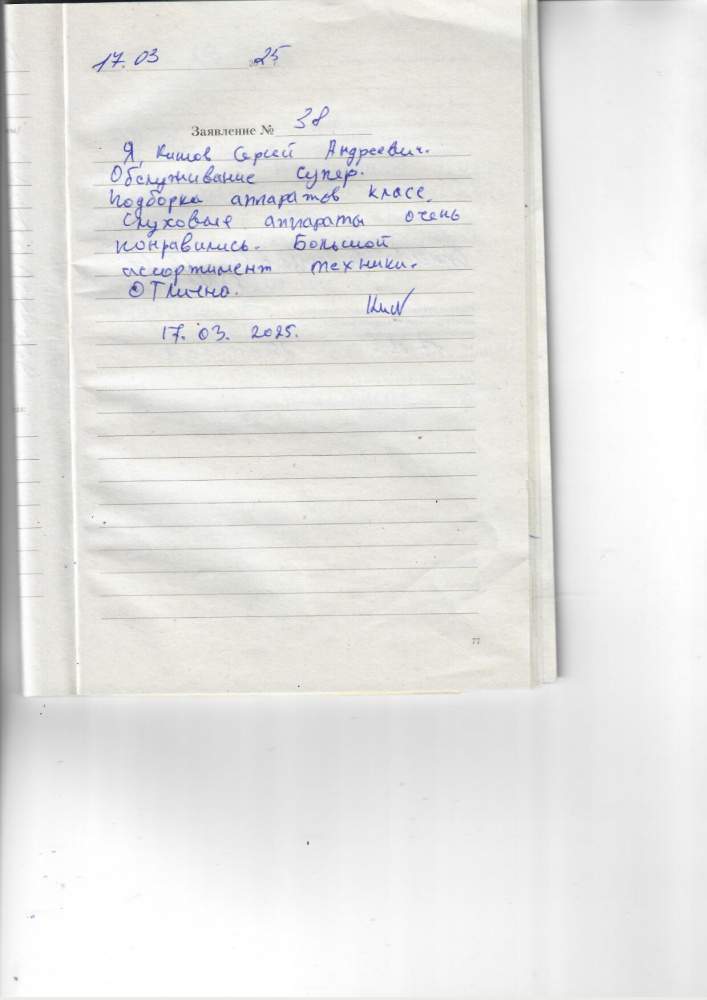 17. 03 25
Заявление № 38
Я, Сергей Андреевич.
Обслуживание супер.
Подборка аппаратов класс.
Слуховые аппараты очень
понравились. Большой
ассортимент техники.
Отлично.
17. 03. 2025.
77